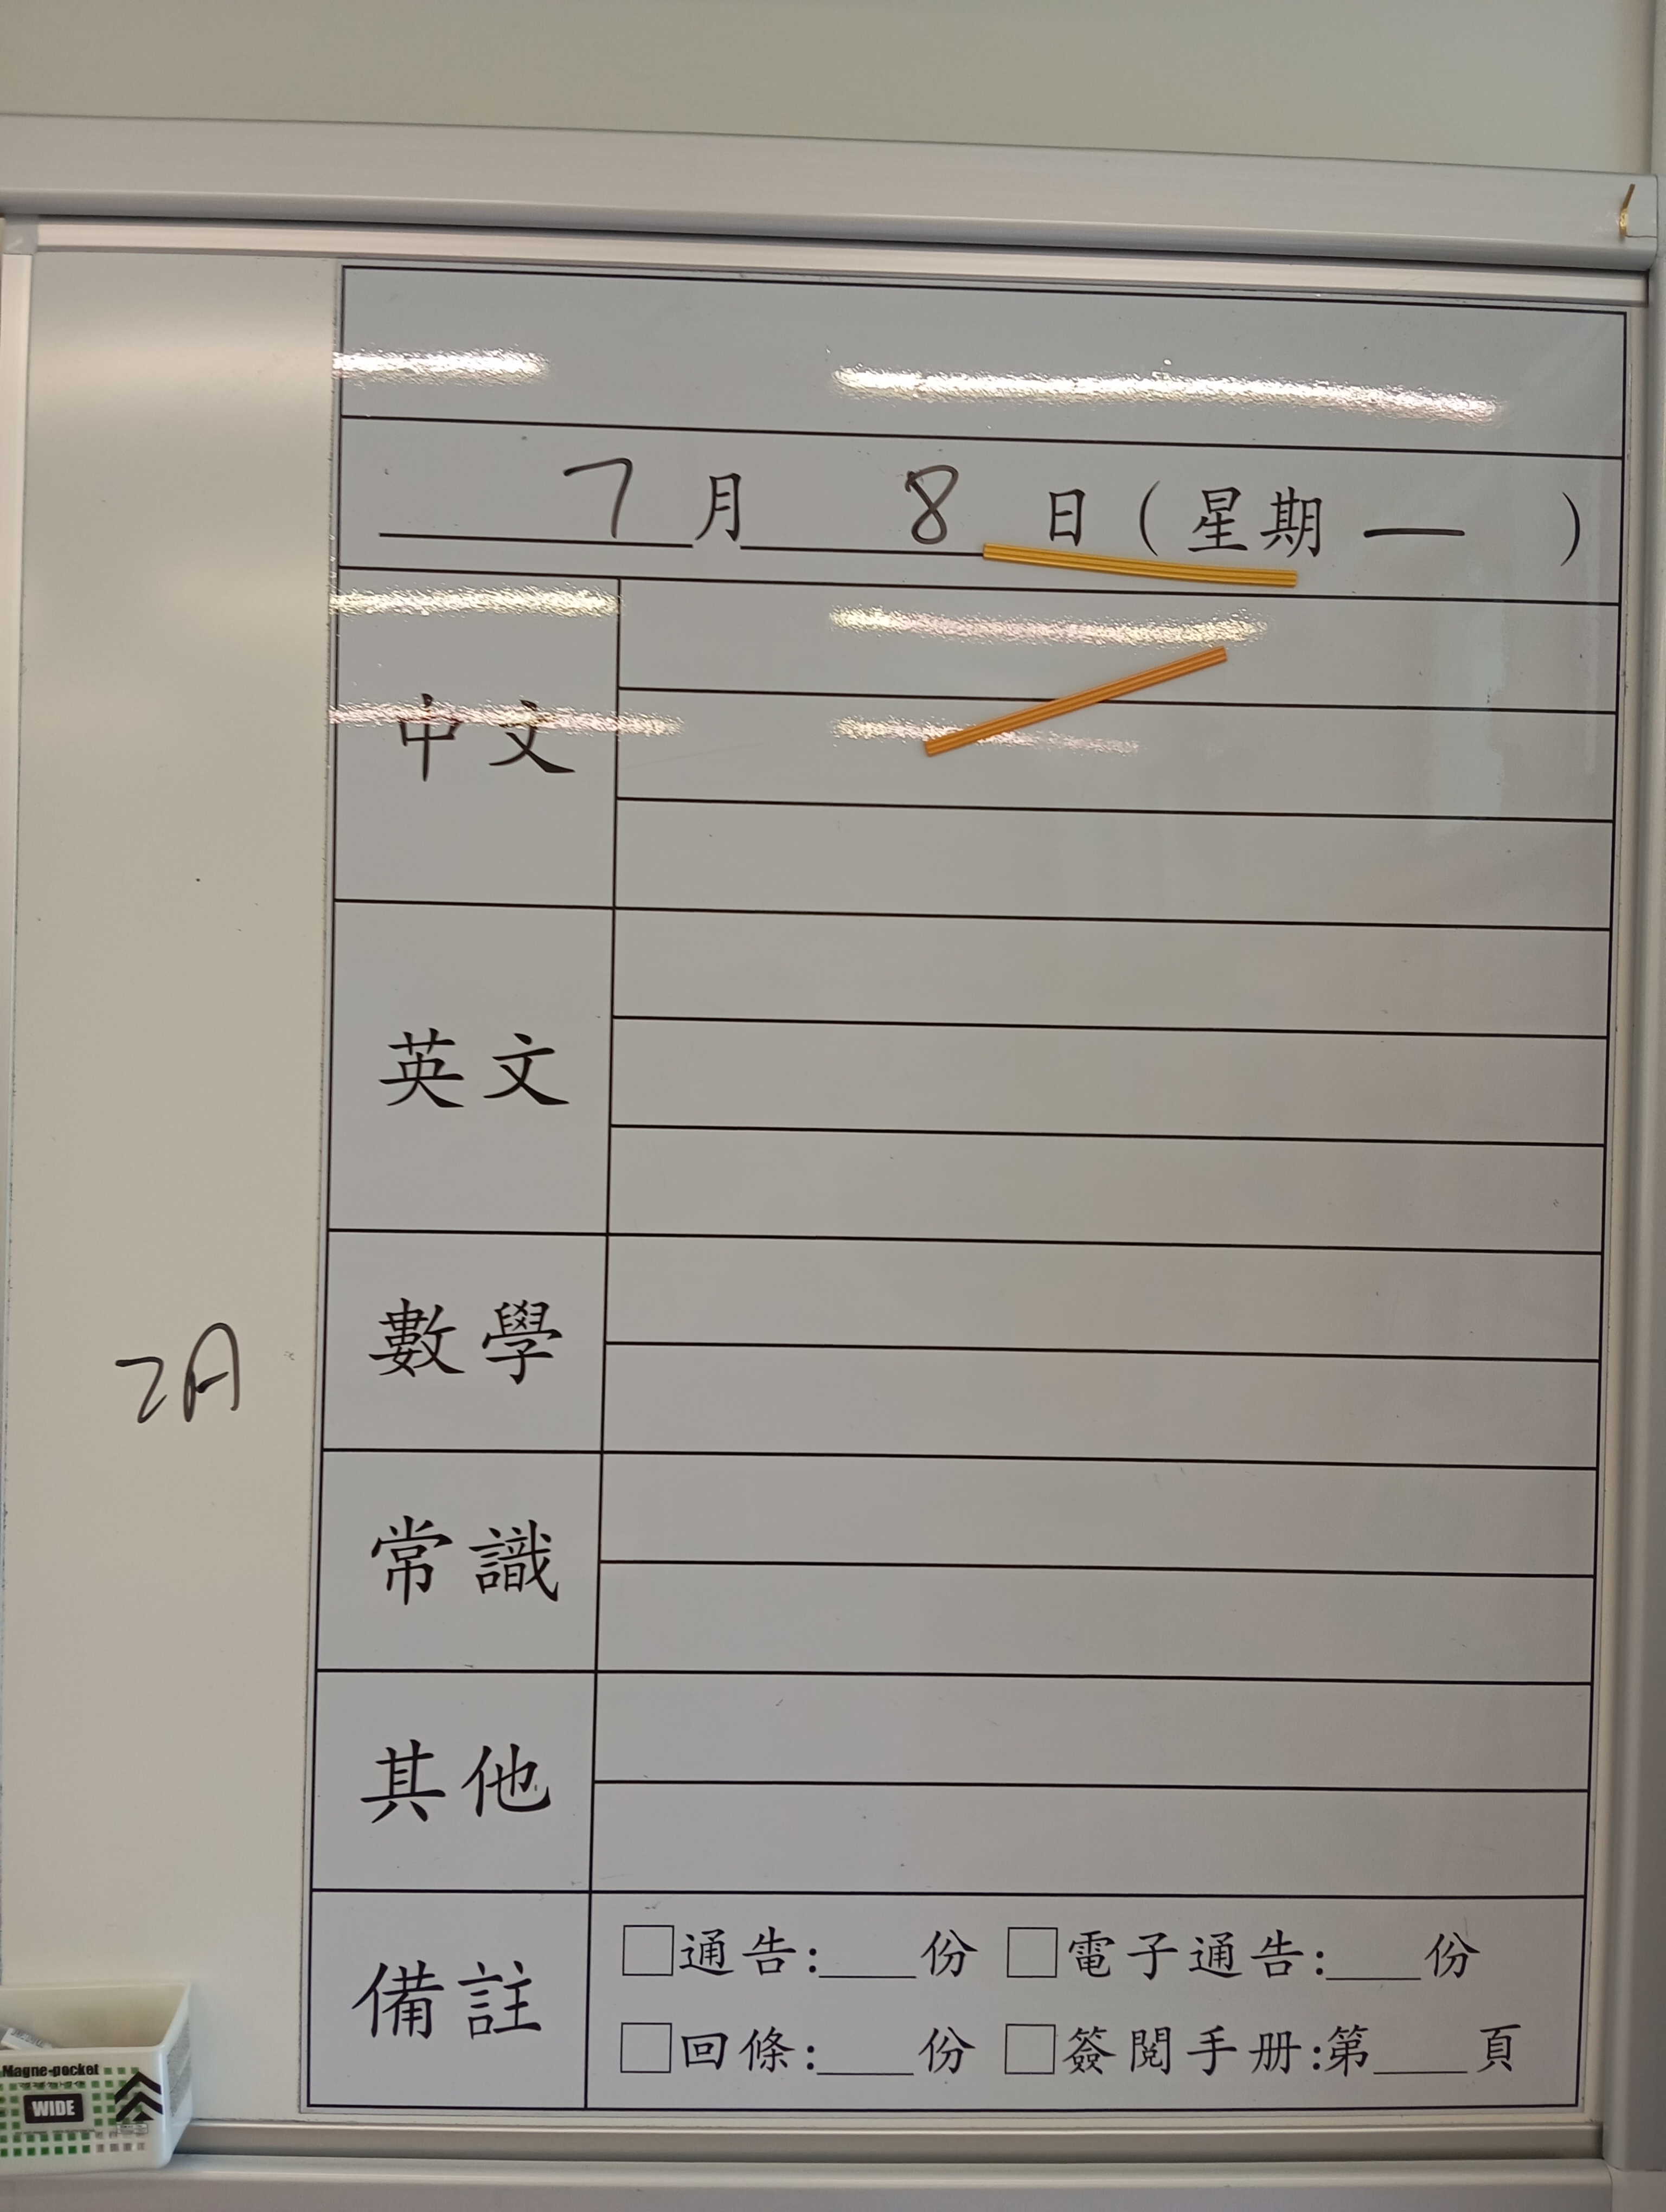 7月 8 日(星期一 )
中文
英文
數學
2A
常識
其他
備註
□通告:___份 □電子通告:___份
□回條:___份 □簽閱手册:第___頁
Magne-pocket
WIDE